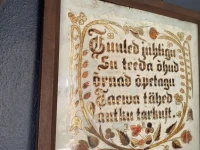 Tuuled juhtigu
Su teeda õhud
õrnad õpetagu
Taewa tähed
andku tarkust.